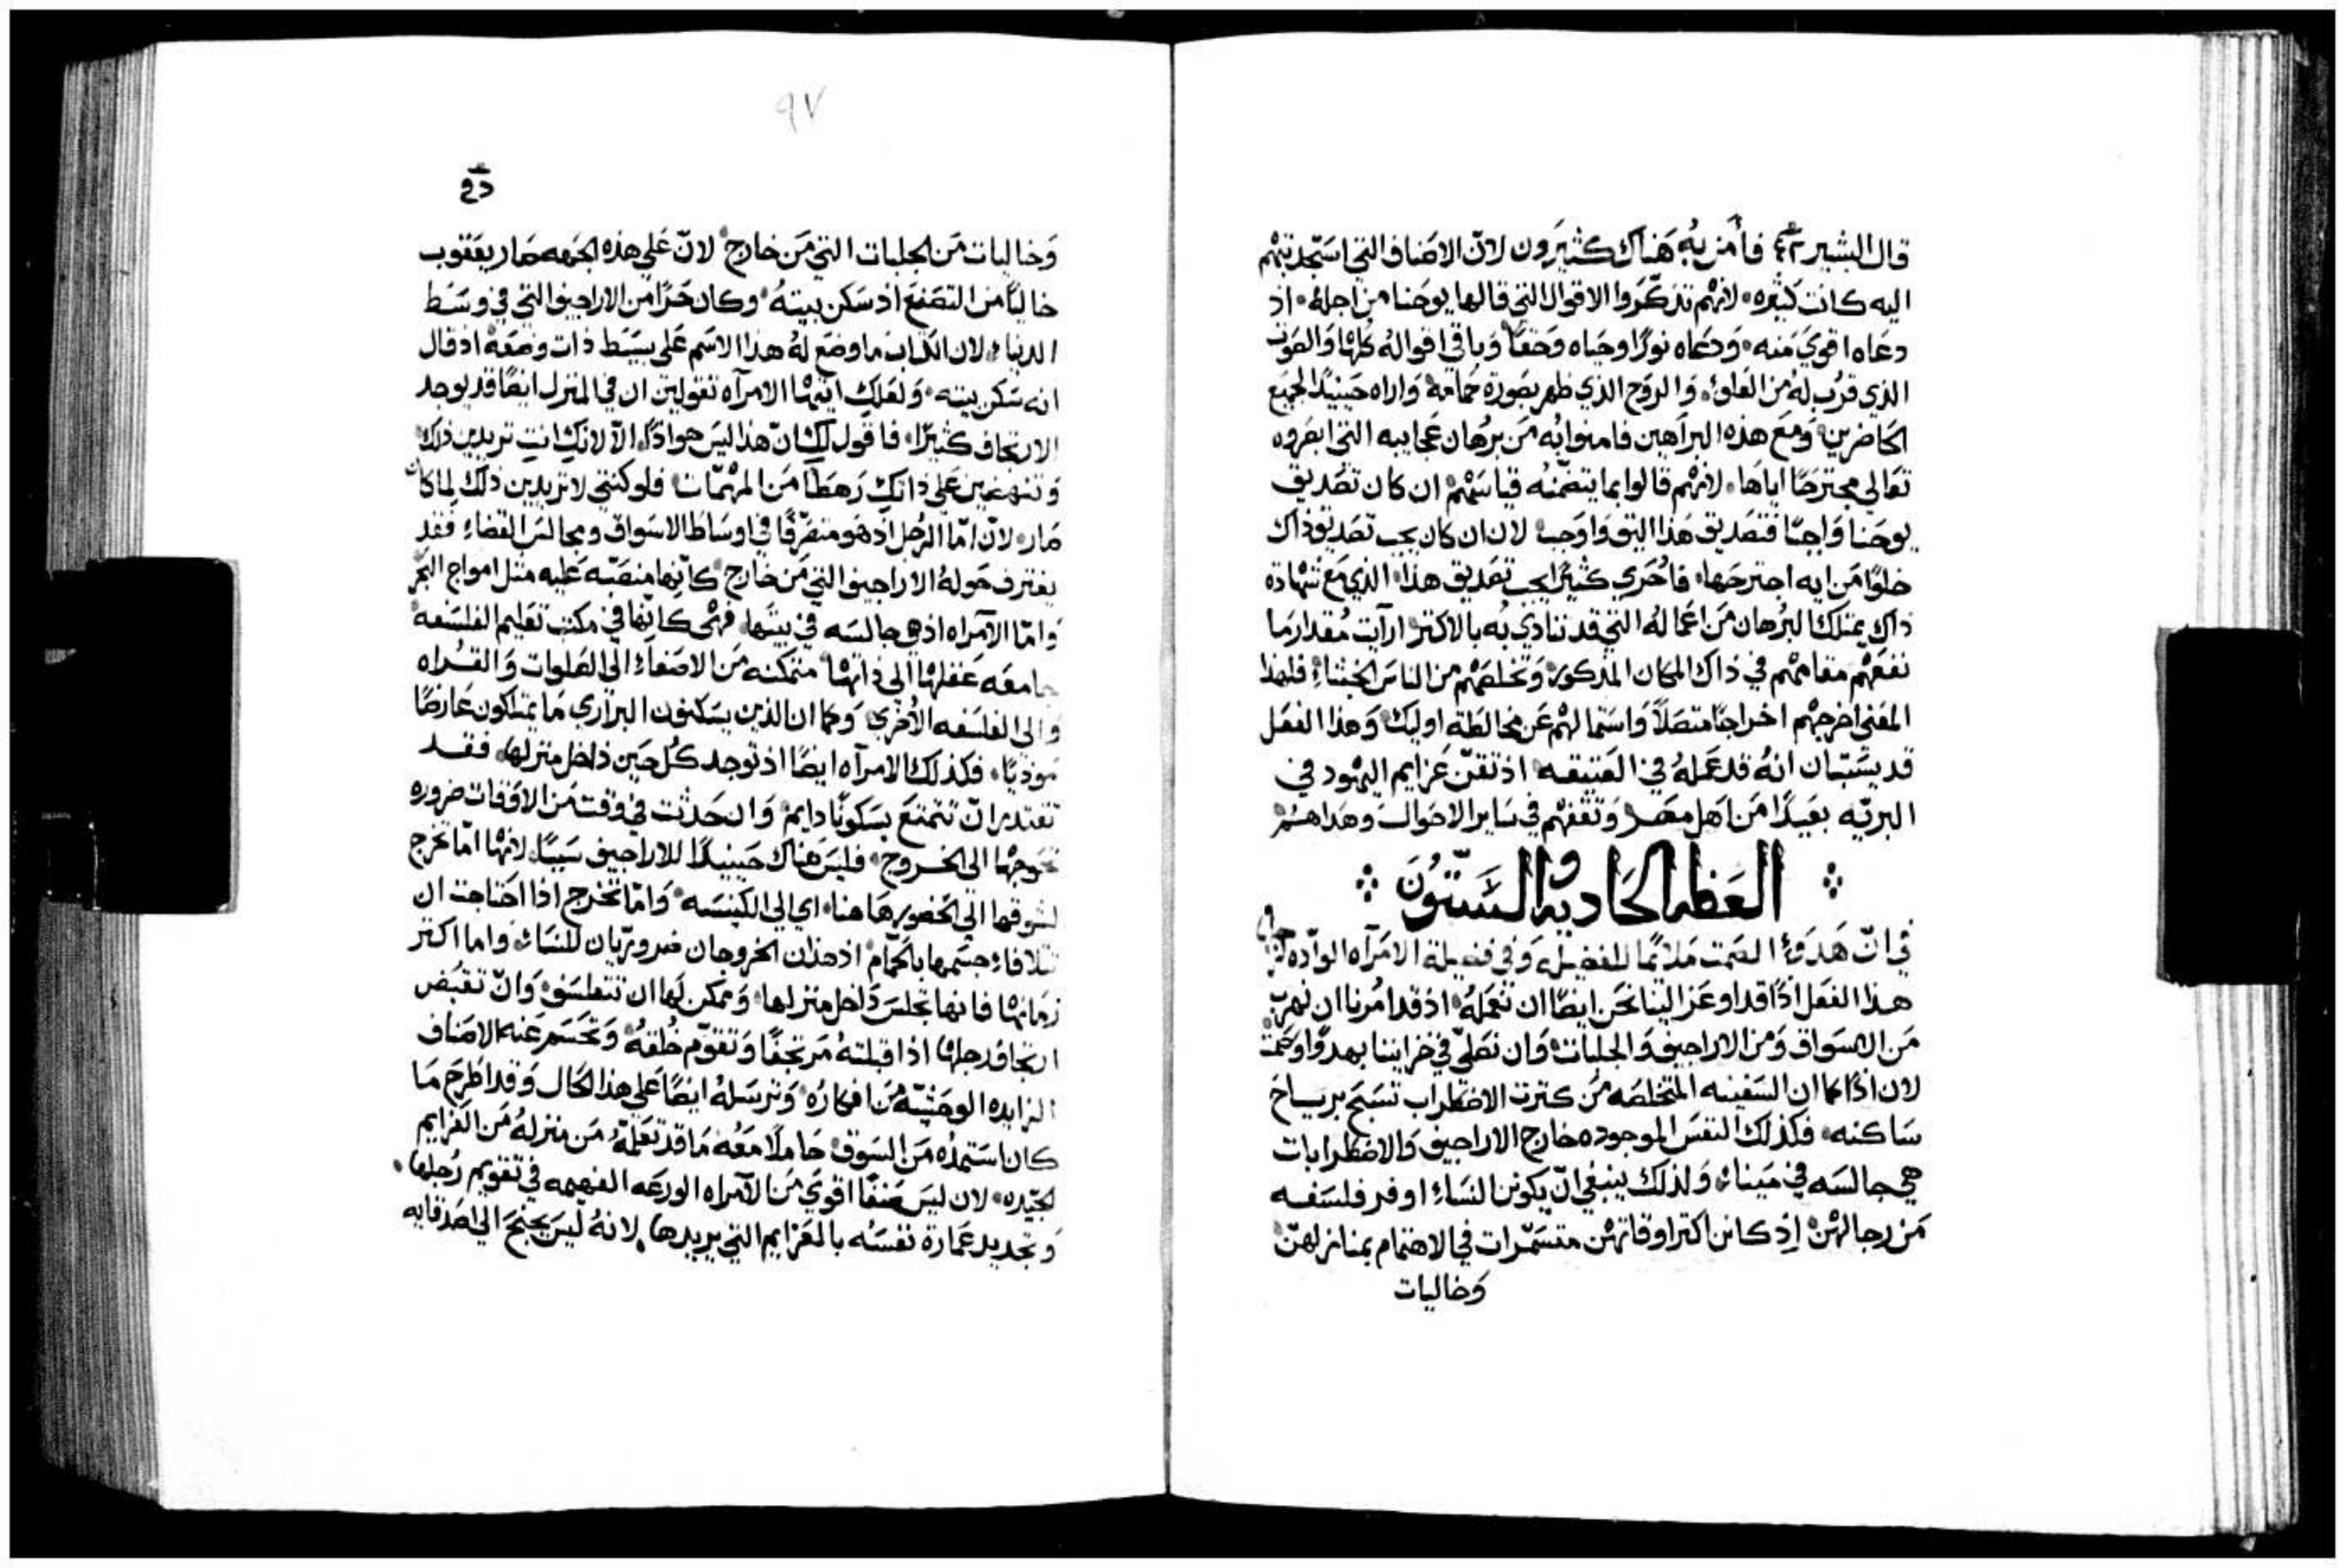 قال البشير فأمن به هناك كثيرون لان الاصناف التي استجدبتهم
اليه كانت كثيره لانهم تذكروا الاقوال التي قالها يوحنا من اجله اذ
دعاه اقوي منه ودعاه نورًا وحياه وحقًا وباقي اقواله كلها والصوت
الذي قرب له من العلو والروح الذي ظهر بصورة حمامة واراه حينيدًا لجميع
الحاضرين ومع هذه البراهين فامنوا به من برهان عجايبه التي ابصروه
تعالي مجترحًا اياها لانهم قالوا بما يتضمنه قياسهم ان كان تصديق
يوحنا واجبًا فتصديق هذا اليق واوجب لان ان كان يجب تصديق ذاك
خلوًا من ايه اجترحها فاحري كثيرًا يجب تصديق هذا الذي مع شهادة
ذاك يمتلك البرهان من اعماله التي قد تنادي به بالاكتر ارآيت مقدار ما
نفعهم مقامهم في ذاك المكان المذكور وتخلصهم من الناس الخبثاء فلهذا
المعني اخرجهم اخراجًا متصلًا واستمالهم عن مخالطة اوليك وهذا الفعل
قد يستبان انه قد عمله في العتيقه اذ تقن عزايم اليهود في
البريه بعيدًا من اهل مصر وثقفهم في ساير الاحوال وهداهم
العظه الحاديه والستون
في ان هدوء الصمت ملايمًا للفضيله وفي فضيلة الامرآه الوادّه
هذا الفعل اذًا قد اوعز الينا نحن ايضًا ان نعمله اذ قد امرنا ان نهرب
من الاسواق ومن الاراجيف والجلبات وان نصلي في خزايننا بهدوًا وصمت
لان اذًا كما ان السفينه المتخلصه من كترت الاضطراب تسبح برياح
ساكنه فكذلك النفس الموجوده خارج الاراجيف والاضطرابات
هي جالسه في ميناء ولذلك ينبغي ان يكونن النساء اوفر فلسفه
من رجالهن اذ كانن اكتر اوقاتهن متسمرات في الاهتمام بمنازلهن
وخاليات
٩٧
وخاليات من الجلبات التي من خارج لان علي هذه الجهه صار يعقوب
خاليًا من التصنع اذ سكن بيته وكان حرًا من الاراجيف التي في وسط
الدنيا لان الكتاب ما وضع له هذا الاسم علي بسيط ذات وضعه اذ قال
انه سكن بيته ولعلك ايتها الامرآه تقولين ان في المنزل ايضًا قد يوجد
الارتجاف كثيرًا فاقول لك ان هذا ليس هو اذًا الا لانك انت تريدين ذلك
وتنهضين علي ذاتك رهطًا من المهمات فلو كنتي لا تريدين ذلك لما كان
صار لان امّا الرجل اذ هو متصرفًا في اوساط الاسواق ومجالس القضاء فقد
يغترف حوله الاراجيف التي من خارج كانها منصبّه عليه مثل امواج البحر
وامّا الآمراه اذ هي جالسه في بيتها فهي كانها في مكتب تعليم الفلسفه
جامعه عقلها الي ذاتها متمكنه من الاصغاء الي الصلوات والقراه
والي الفلسفه الأخري وكما ان الذين يسكنون البراري ما يمتلكون عارضًا
موذيًا فكذلك الامرآه ايضًا اذ توجد كل حين داخل منزلها فقد
تقتدر ان تتمتع بسكونًا دايم وان حدثت في وقت من الاوقات ضروره
تحوجها الي الخروج فليس هناك حينيدًا للاراجيف سببًا لانها امّا تخرج
لشوقها الي الحضور هاهنا اي الي الكنيسه وامّا تخرج اذا احتاجت ان
تلافاء جسمها بالحمّام اذ هذان الخروجان ضروريان للنساء واما اكتر
زمانها فانها تجلس داخل منزلها وممكن لها ان تتفلسف وان تقبض
ارتجاف رجلها اذا قبلته مرتجفًا وتقوّم خلقه وتحسم عنه الاصناف
الزايده الوحشيّه من افكاره وترسله ايضًا علي هذا الحال وقد اطرح ما
كان استمده من السوق حاملًا معه ما قد تعلمه من منزله من العزايم
الجيّده لان ليس صنفًا اقوي من الآمراه الورعه الفهيمه في تقويم رجلها
وتجديد عمارة نفسه بالعزايم التي يريدها لانه ليس يجنح الي اصدقايه